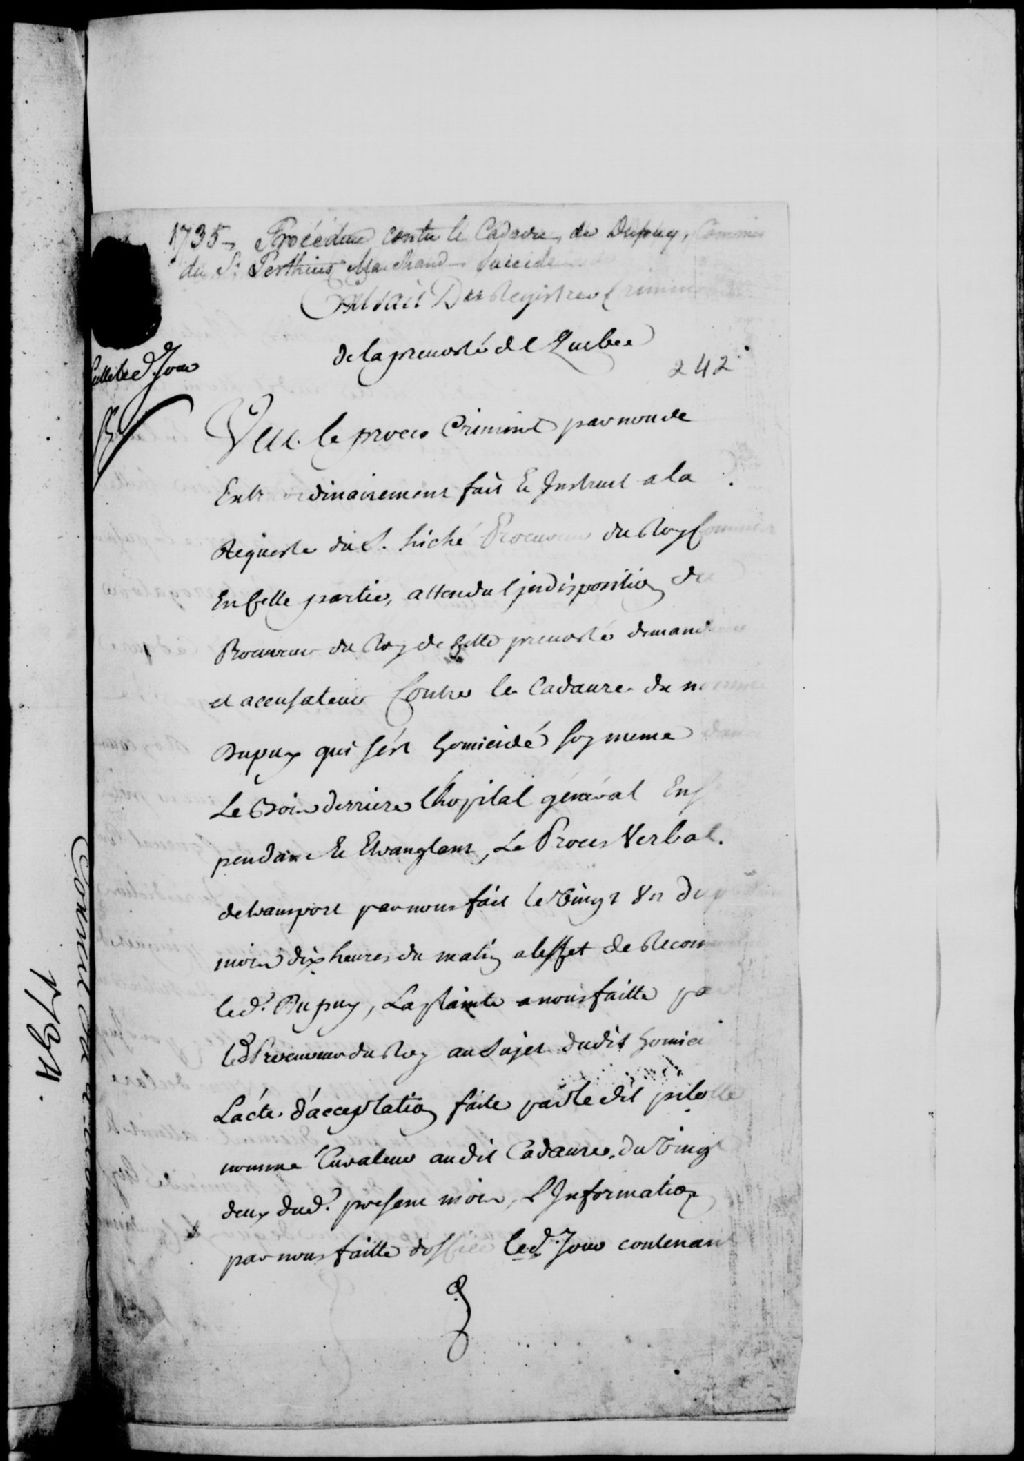 1735 Procédure contre le Cadavre de Dupuy, Commis
du Sr. Perthius Marchand Suicide
Extrait Des Registres Crimin
de la prevosté de Quebec
242
led. Jour
Veu le procès Criminel par nous
Extraordinairement fait et Instruit a la
Requeste du S. hiché Procureur du Roy Commis
En Cette partie, attendu l'jndisposition du
Procureur du Roy de Cette prevosté demandeur
et accusateur Contre le Cadavre du nommé
Dupuy qui s'ést homicidé soy meme dans
Le Bois derriere l'hopital général En se
pendant Et Etranglant, Le Procès Verbal
de transport par nous fait le Vingt Un du p
mois dix heures du matin a l'effet de Recon
led. Dupuy, La plainte a nous faitte par
Led Procureur du Roy au Sujet dudit homici
L'acte d'acceptation faite par le dit pilotte
nommé Curateur audit Cadavre, du Vingt
deux dud. present mois, L'Information
par nous faitte d'office led. Jour contenant
1734.